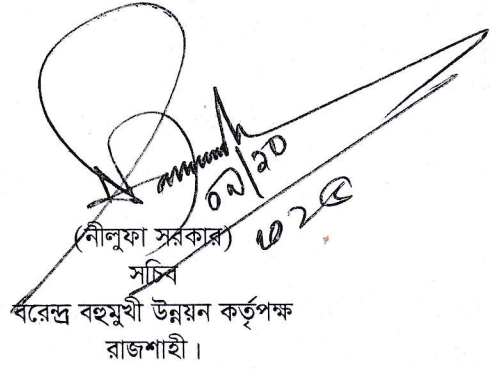 (নীলুফা সরকার)
সচিব
বরেন্দ্র বহুমুখী উন্নয়ন কর্তৃপক্ষ
রাজশাহী।